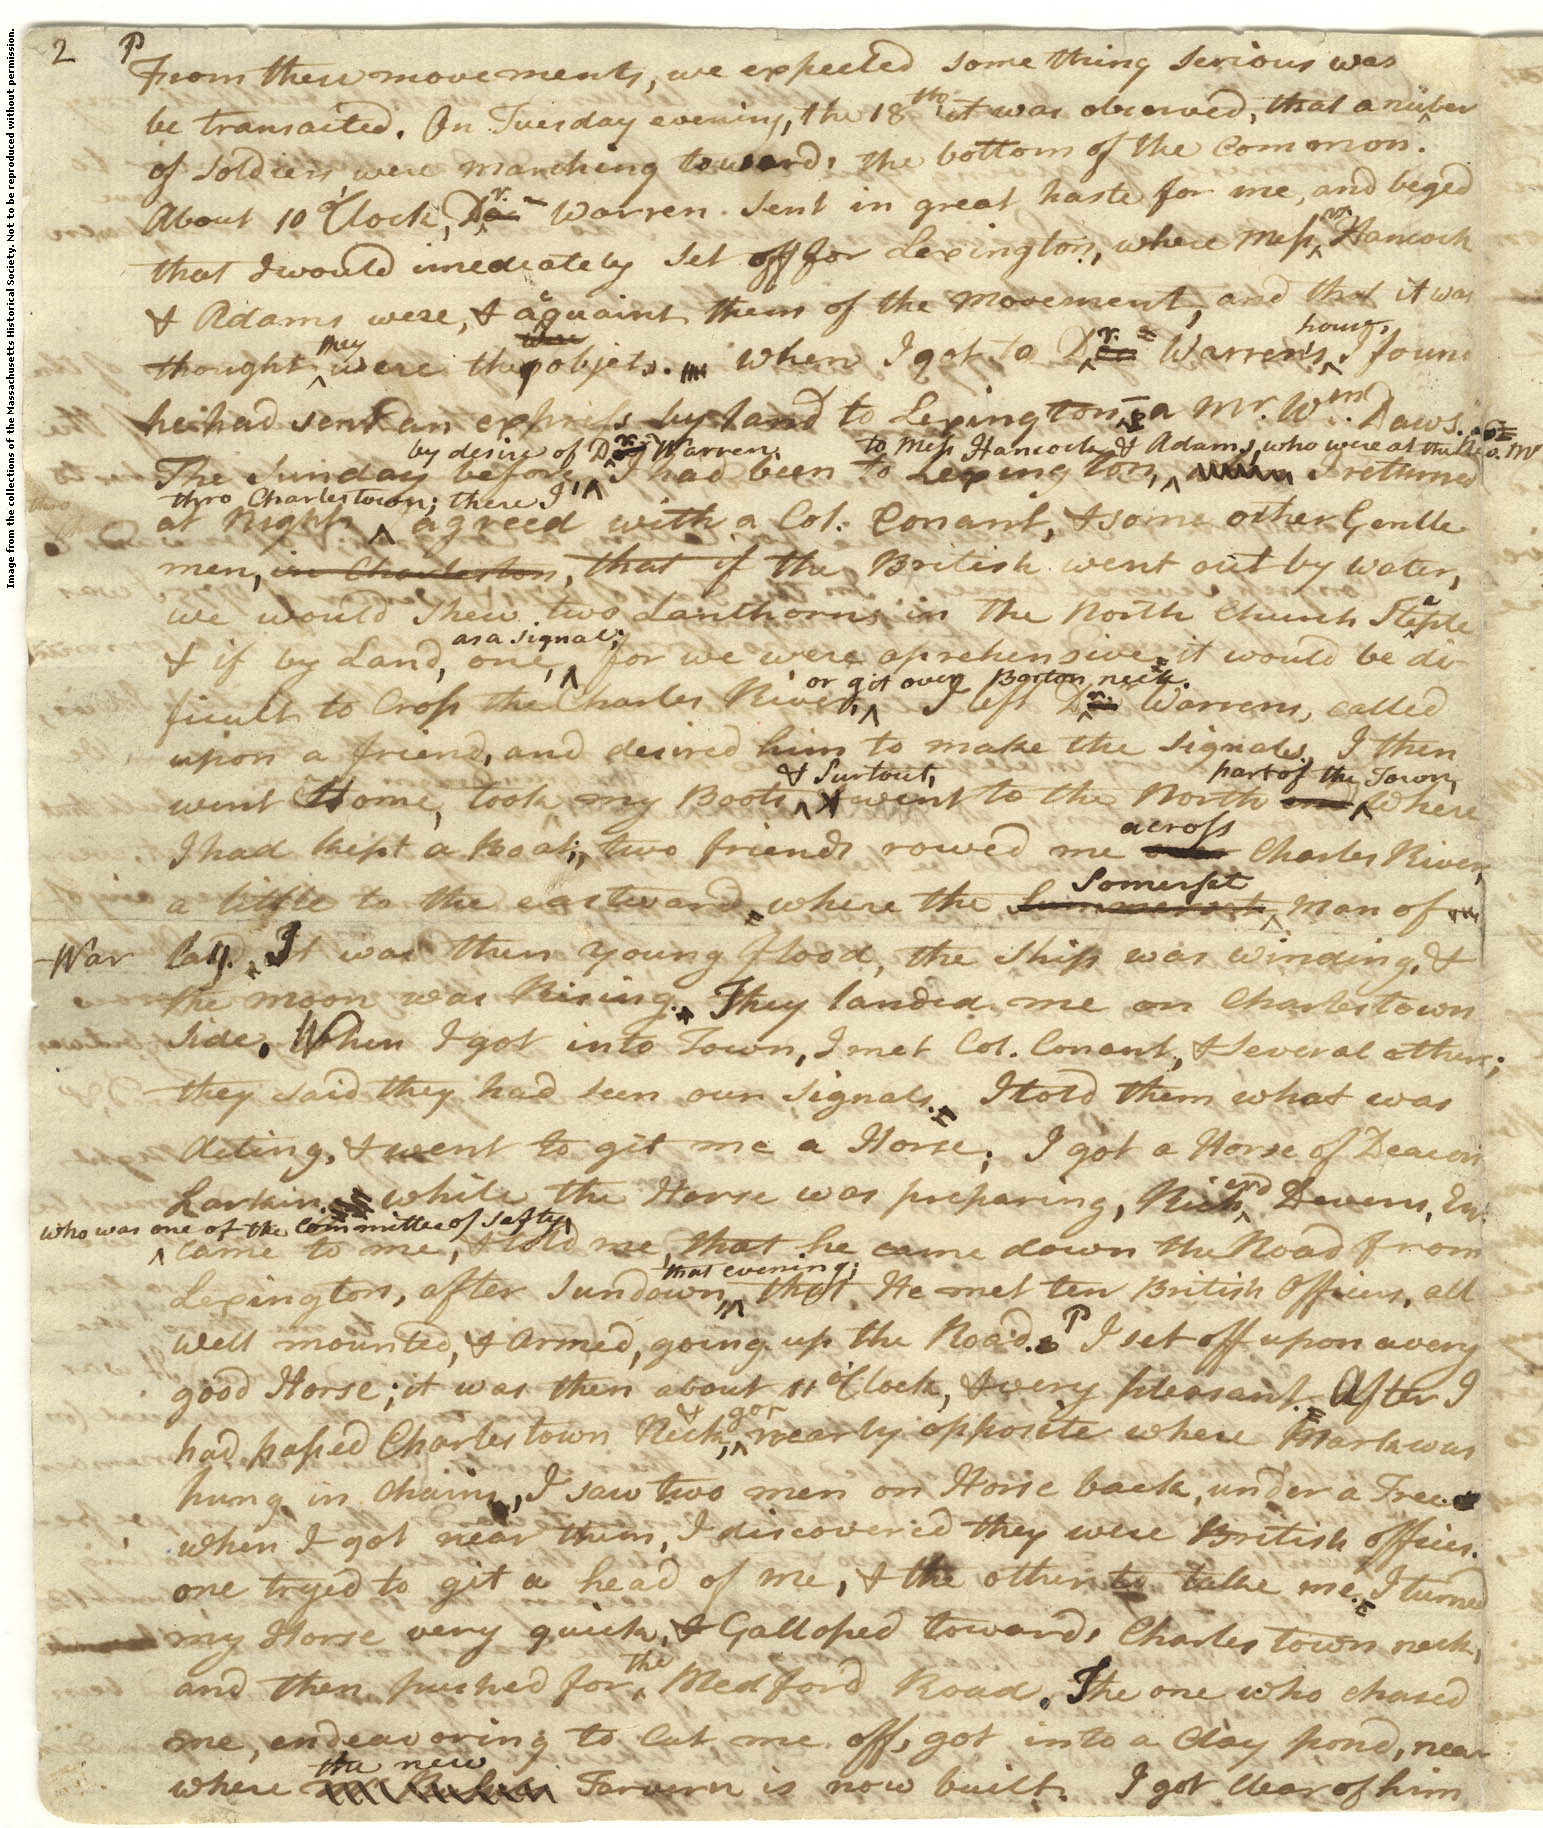 Image from the collections of the Massachusetts Historical Society. Not to be reproduced without permission.
2 P
From these movements, we expected something serious was
be transacted. On Tuesday evening, the 18th it was observed, that a nuber
of Soldiers were marching towards the bottom of the Common.
About 10 o'Clock, Dr. Warren Sent in great haste for me, and beged
that I would imediately Set off for Lexington, where Messrs Hancock
& Adams were, & acquaint them of the Movement, and that it was
thought they were the objets. When I got to Dr. Warren's house, I found
he had sent an express by land to Lexington - a Mr. Wm. Daws.
by desire of Dr. Warren. to Mess Hancock & Adams, who were at the Rev. Mr
The Sunday before, I had been to Lexington, I returned
thro Charlestown; there I
at Night agreed with a Col. Conant, & some other Gentle
men, in Charleston, that if the British went out by Water,
we would shew two Lanthorns in the North Church Steaple
& if by Land, one, as a signal; for we were aprehensive it would be di
ficult to Cross the Charles River, or git over Boston neck. I left Dr. Warrens, called
upon a friend, and desired him to make the Signals. I then
went Home, took my Boots & Surtout, & went to the North part of the Town, Where
I had kept a Boat; two friends rowed me across Charles River,
a little to the eastward where the Somerset Man of
War lay. It was then young flood, the Ship was winding, &
the moon was Rising. They landed me on Charlestown
side. When I got into Town, I met Col. Conant, & several others;
they said they had seen our signals. I told them what was
Acting, & went to git me a Horse; I got a Horse of Deacon
Larkin. While the Horse was preparing, Richard Devens, Esq.
who was one of the Committee of Safty,
came to me, & told me, that he came down the Road from
Lexington, after Sundown, that evening; that He met ten British Officers, all
well mounted, & armed, going up the Road. P I set off upon a very
good Horse; it was then about 11 o'Clock, & very pleasant. After I
had passed Charlestown Neck, & got nearly opposite where Mark was
hung in chains, I saw two men on Horse back, under a Tree.
when I got near them, I discovered they were British officer.
one tryed to git a head of me, & the other to take me. I turned
my Horse very quick, & Galloped towards Charlestown neck,
and then pushed for the Medford Road. The one who chased
me, endeavoring to Cut me off, got into a Clay pond, near
where the new Tavern is now built. I got clear of him